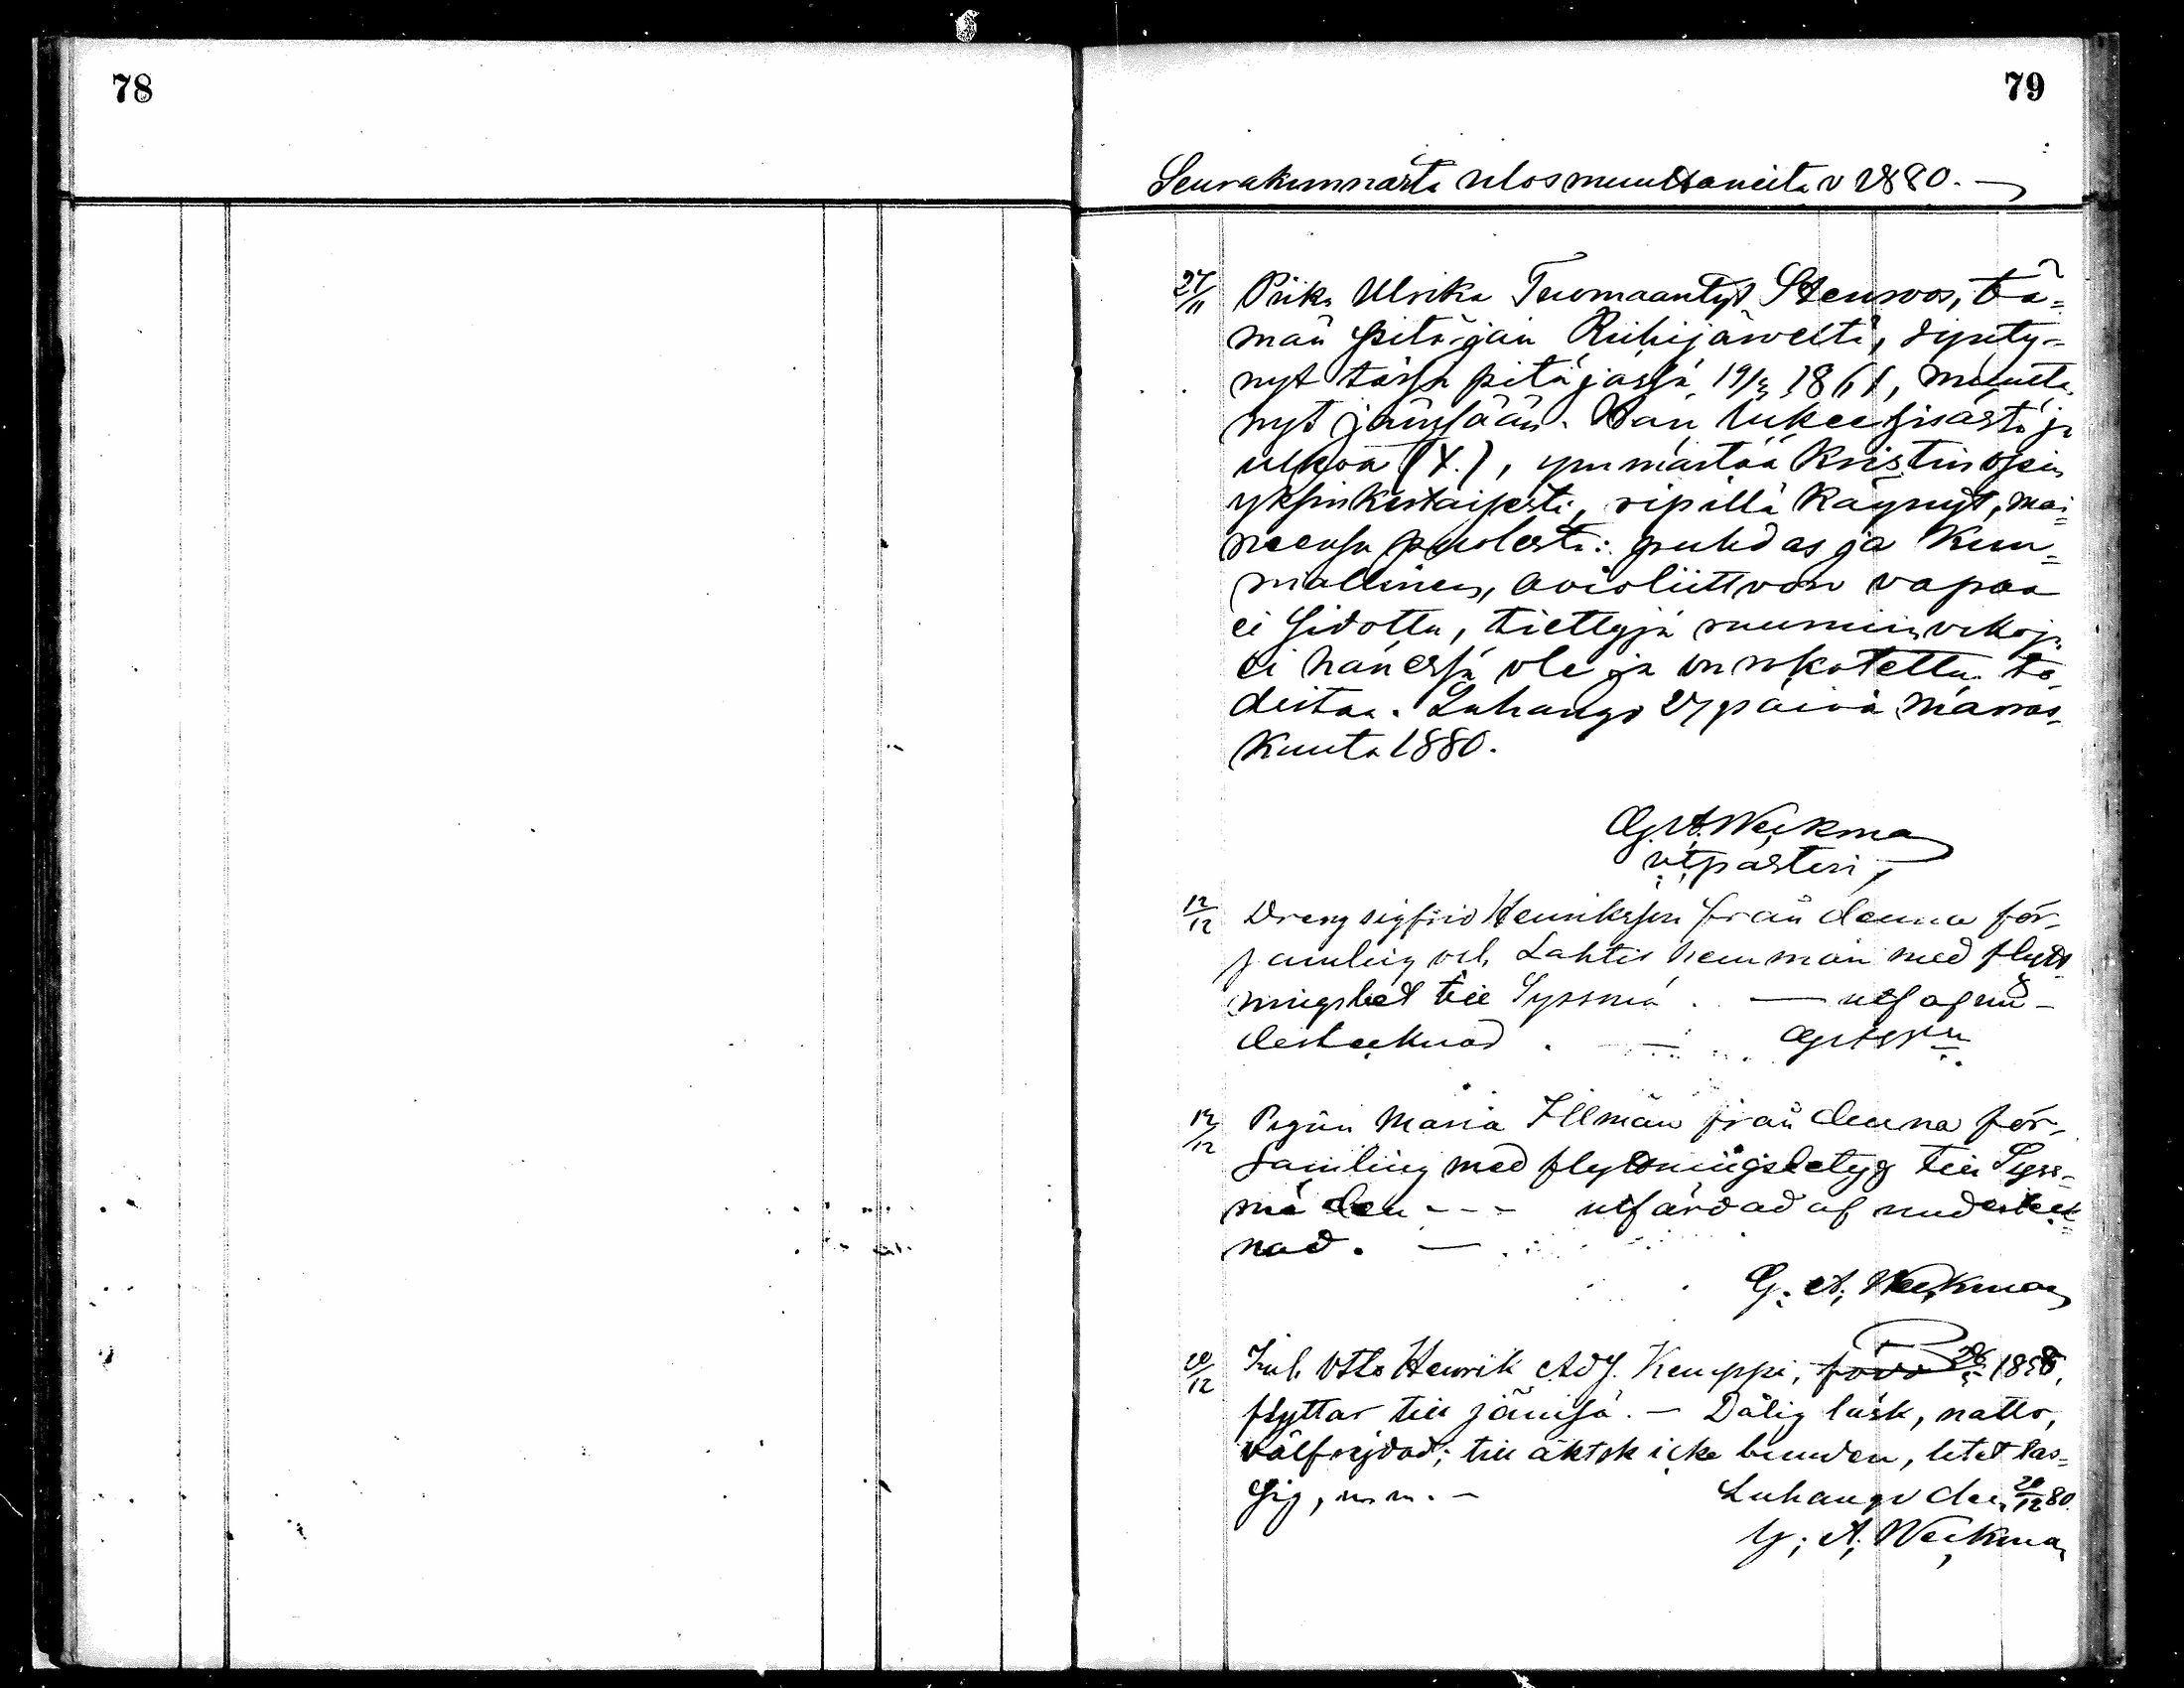 78
79
Seurakunnasta ulosmuuttaneita v 1880. —
27/11 Piika Ulrika Tuomaantyt. Stenroos, tä=
män pitäjän Riihijärveltä, synty=
nyt tässä pitäjässä 19/3 1861, muutta
nyt Jämsään. Hän lukee sisästä ja
ulkoa (X.), ymmärtää kristin opin
yksinkertaisesti, ripillä käynyt, mai=
neensa puolesta: puhdas ja kun=
niallinen, avioliittoon vapaa
ei sidottu, tiettyjä ruumiin vikoja
ei hänessä ole ja on rokotettu to-
distaa. Luhango 27 päivä marras-
kuuta 1880.
G. A. Weckman
vt pastori
12/12 Dreng Sigfrid Henriksson från denna för-
samling och Lahtis hemman med flytt
ningsbet till Sysmä. — utf af un-
dertecknad. —
12/12 Pigan Maria Illman från denna för-
samling med flyttningsbetyg till Sys=
mä den - - - utfärdad af underteck=
nad. —
G. A. Weckman
20/12 Inh. Otto Henrik Adf. Kemppi, född 1858,
flyttar till Jämsä. — Dålig läsk, nattv,
välfrejdad; till äktsk icke bunden, litet las=
sig, m.m. — Luhango den 20/12 80.
G. A. Weckman